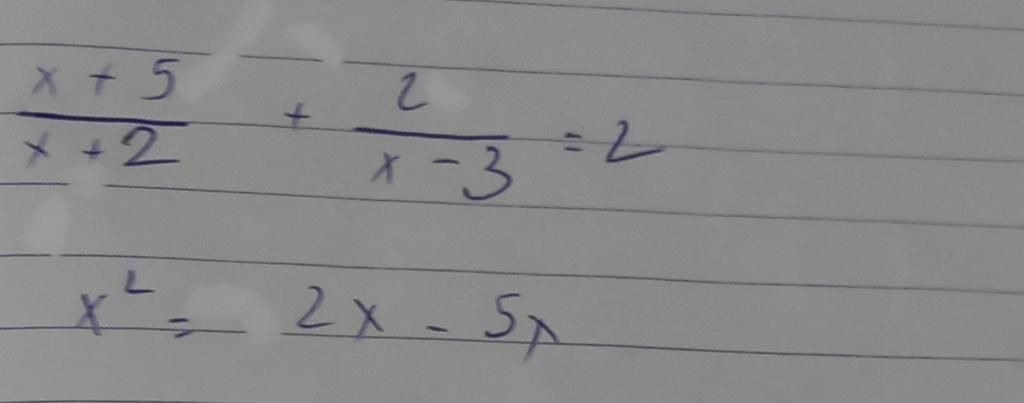 x + 5 / x + 2 + 2 / x - 3 = 2
x² = 2x - 5x